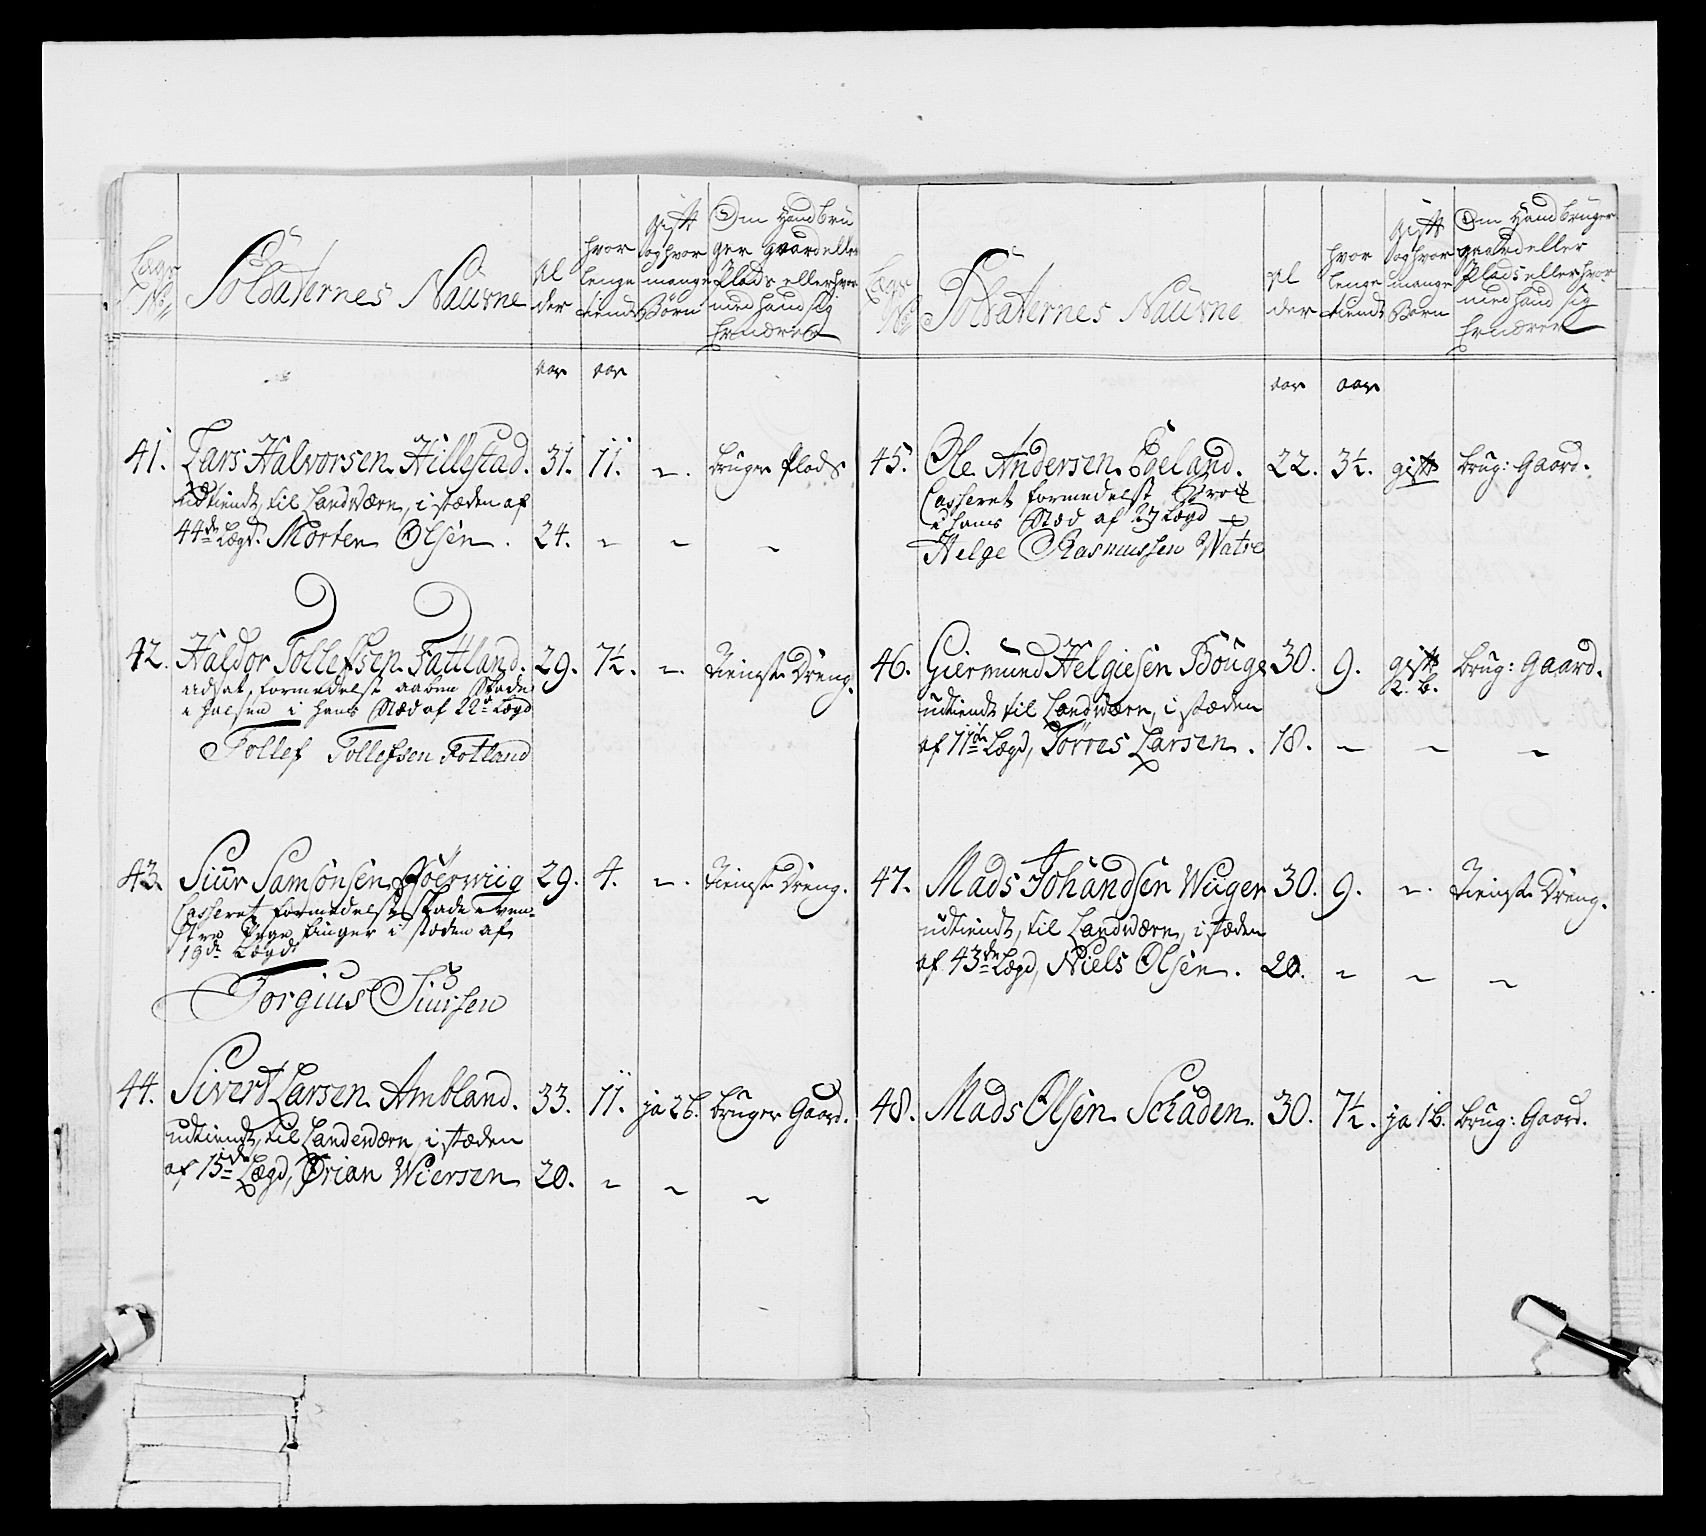 Lægs No
Soldaternes Naurne
Al der
hvor lenge tient
gift og hvor mange Börn
Om Hand bruger gaard eller Plads eller hvor med hand sig Ernærer
aar aar
41. Lars Halvorsen Hillestad. 31. 11. ~. bruger Plads
udtient til Landværn, i stæden af
44de Lægd. Morten Olsen. 24. ~ ~ ~
42. Haldor Tollefsen Fattland. 29. 7½. ~. Tieniste Dreng.
udsat formedelst aaben Skade
i halsen i hans Stæd af 22de Lægd
Tollef Tollefsen Fotland
43. Siur Samsonsen 29. 4. ~. Tieniste Dreng.
Casseret formedelst skade i ven-
stre finger i stæden af
19de Lægd
Torgius Siursen
44. Sivert Larsen Ambland. 33. 11. ja 2 b. bruger Gaard.
udtient til Landeværn, i stæden
af 15de Lægd, Ørian Wiersen 20. ~ ~ ~
Lægs No
Soldaternes Naurne
Al der
hvor lenge tient
gift og hvor mange Børn
Om Hand bruger gaard eller Plads eller hvor med hand sig Ernærer
aar aar
45. Ole Andersen Egeland. 22. 3½. gift brug: Gaard.
Casseret formedelst
i hans Stæd af 27 Lægd
Helge Rasmussen Watre
46. Giermund Helgiesen Böuge 30. 9. gift 2. b. brug: Gaard.
udtient til Landværn, i stæden
af 11de Lægd, Törres Larsen. 18. ~ ~ ~
47. Mads Johandsen Wiiger 30. 9. ~. Tieniste Dreng.
udtient, til Landværn, i stæden
af 43de Lægd, Niels Olsen. 20. ~ ~ ~
48. Mads Olsen Schaden. 30. 7½. ja 1 b. brug: Gaard.